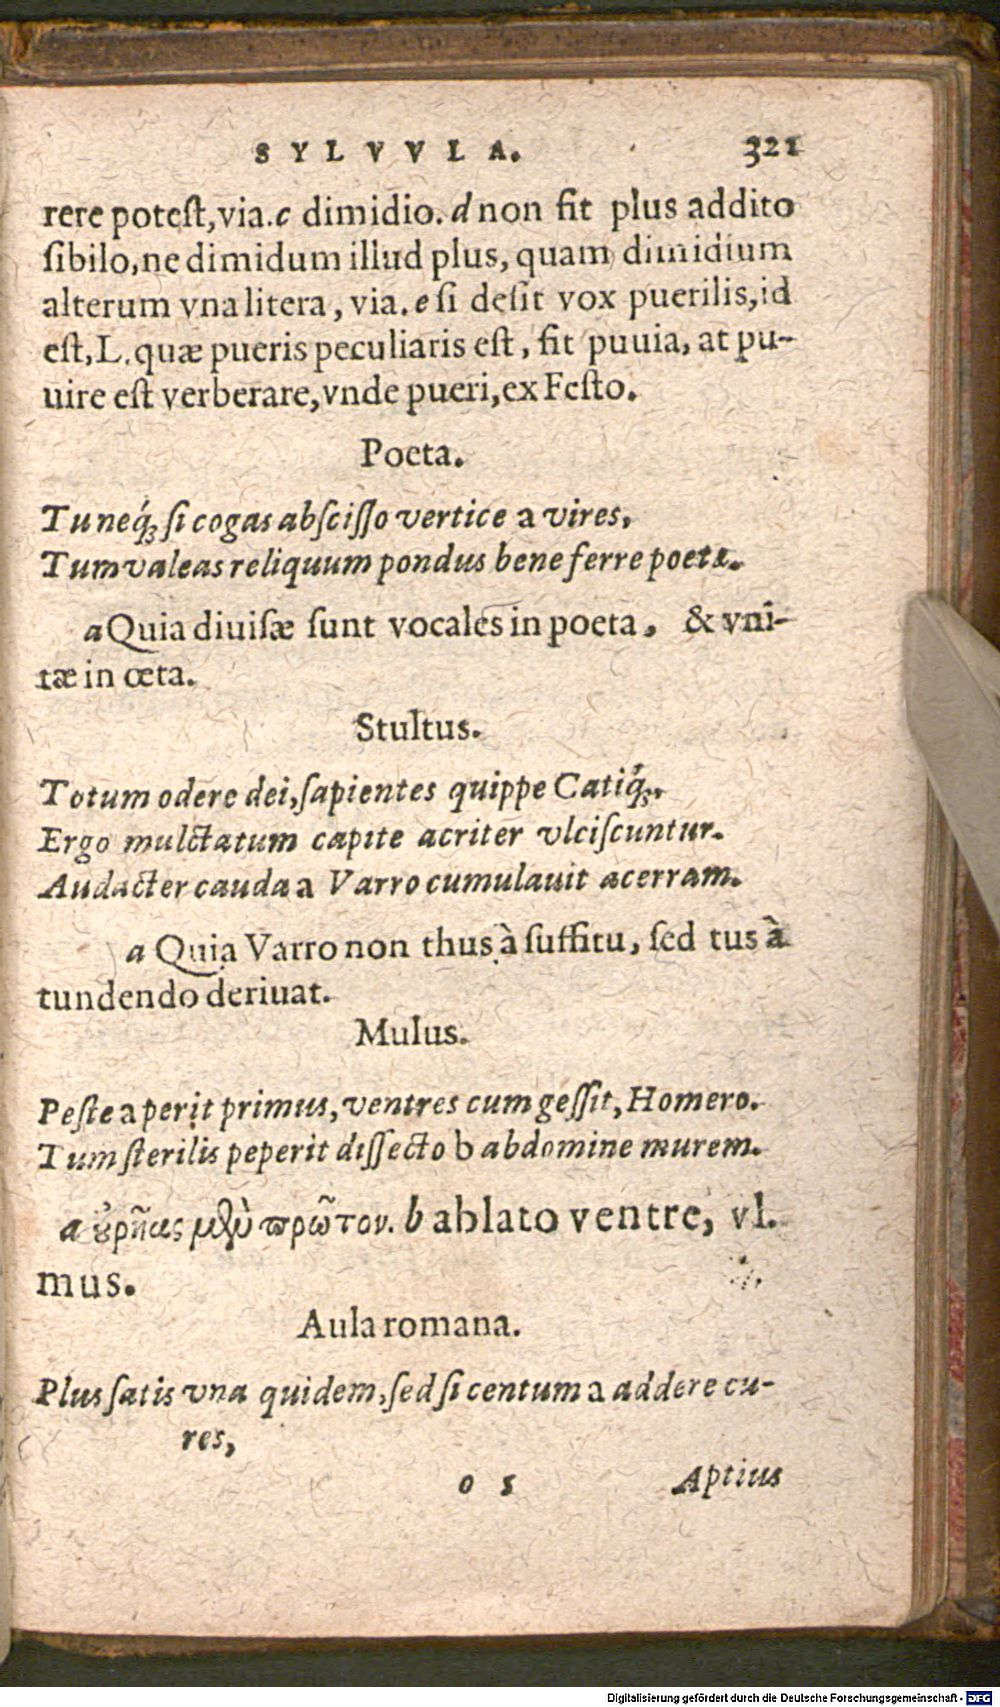 SYLVVLA. 321
rere potest,via.c dimidio.d non fit plus addito
sibilo,ne dimidum illud plus, quam dimidium
alterum vna litera, via. e si desit vox puerilis,id
est,L.quæ pueris peculiaris est, fit puuia, at pu-
uire est verberare,vnde pueri,ex Festo.
Poeta.
Tu neq́; si cogas abscisso vertice a vires,
Tum valeas reliquum pondus bene ferre poeta.
a Quia diuisæ sunt vocales in poeta, & vni-
tæ in œta.
Stultus.
Totum odere dei,sapientes quippe Catiq́;.
Ergo mulctatum capite acriter vlciscuntur.
Audacter cauda a Varro cumulauit acerram.
a Quia Varro non thus à suffitu, sed tus à
tundendo deriuat.
Mulus.
Peste a perit primus,ventres cum gessit,Homero.
Tum sterilis peperit dissecto b abdomine murem.
a ȣ̓ρῆας μὲν πρῶτον. b ablato ventre, vl.
mus.
Aula romana.
Plus satis vna quidem,sed si centum a addere cu-
res,
o 5 Aptius
Digitalisierung gefördert durch die Deutsche Forschungsgemeinschaft - DFG